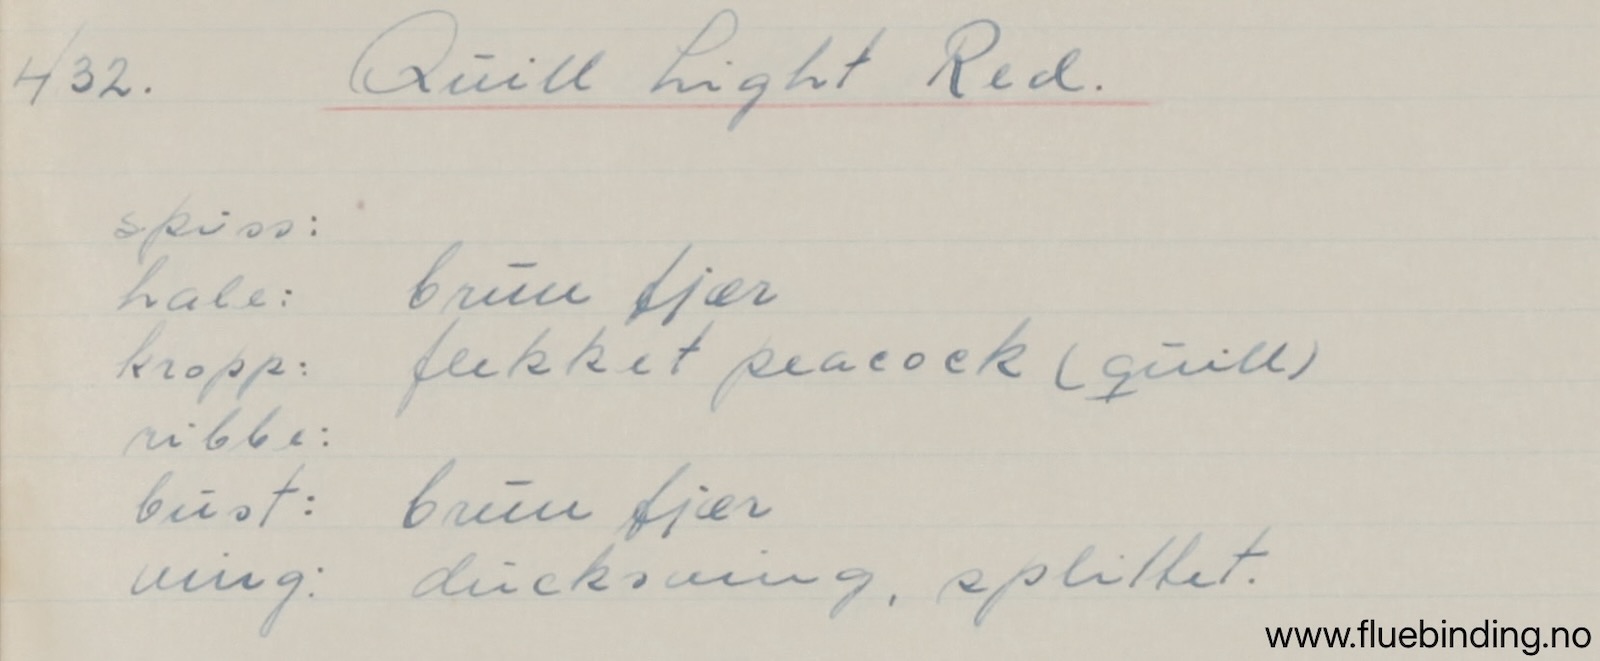 432. Quill Light Red.
spiss:
hale: brun fjær
kropp: flekket peacock (quill)
ribbe:
bust: brun fjær
ving: duckswing, splittet.
www.fluebinding.no